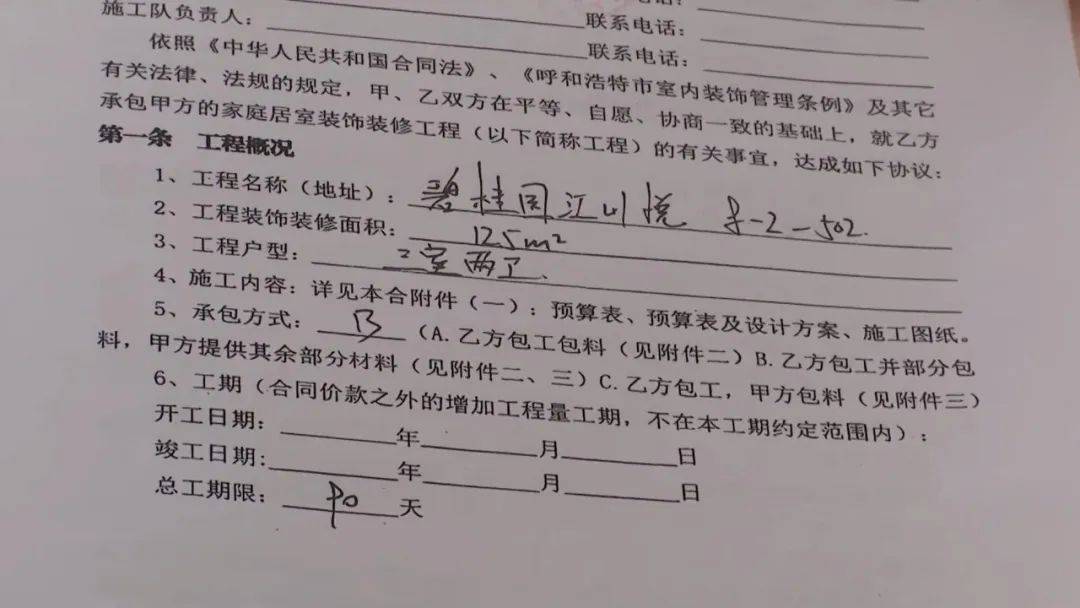 施工队负责人：__________ 联系电话：__________
联系电话：__________
依照《中华人民共和国合同法》、《呼和浩特市室内装饰管理条例》及其它
有关法律、法规的规定，甲、乙双方在平等、自愿、协商一致的基础上，就乙方
承包甲方的家庭居室装饰装修工程（以下简称工程）的有关事宜，达成如下协议：
第一条 工程概况
1、工程名称（地址）：碧桂园江山悦 -2-502.
2、工程装饰装修面积：125m²
3、工程户型：室两厅.
4、施工内容：详见本合附件（一）：预算表、预算表及设计方案、施工图纸。
5、承包方式：B（A.乙方包工包料（见附件二）B.乙方包工并部分包
料，甲方提供其余部分材料（见附件二、三）C.乙方包工，甲方包料（见附件三）
6、工期（合同价款之外的增加工程量工期，不在本工期约定范围内）：
开工日期：______年______月______日
竣工日期:______年______月______日
总工期限：90天